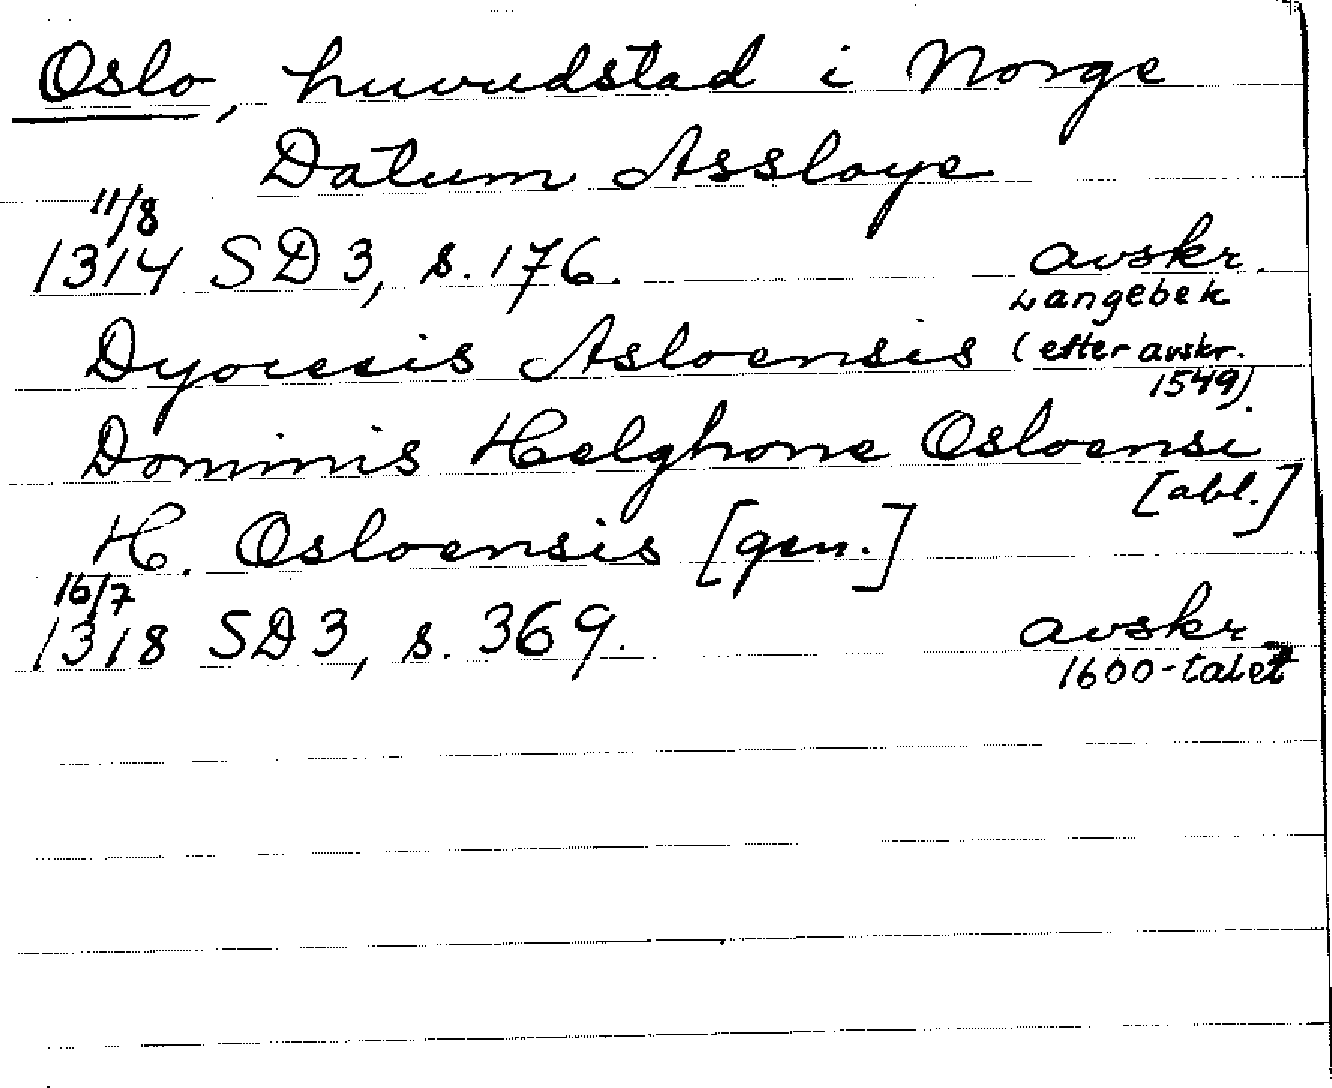 Oslo, huvudstad i Norge
Datum Assloye
11/8
1314 SD 3, s. 176. avskr.
Langebek
Dyocesis Asloensis (efter avskr.
1549).
Dominis Helghone Osloensi
[abl.]
H. Osloensis [gen.]
16/7
1318 SD 3, s. 369. avskr.
1600-talet